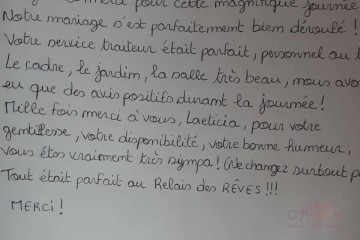 merci pour cette magnifique journée
Notre mariage s'est parfaitement bien déroulé !
Votre service traiteur était parfait, personnel au t
Le cadre, le jardin, la salle très beau, nous avo
eu que des avis positifs durant la journée !
Mille fois merci à vous, Laeticia, pour votre
gentillesse, votre disponibilité, votre bonne humeur,
vous êtes vraiment très sympa ! (Ne changez surtout p
Tout était parfait au Relais des RÊVES !!!
MERCI !